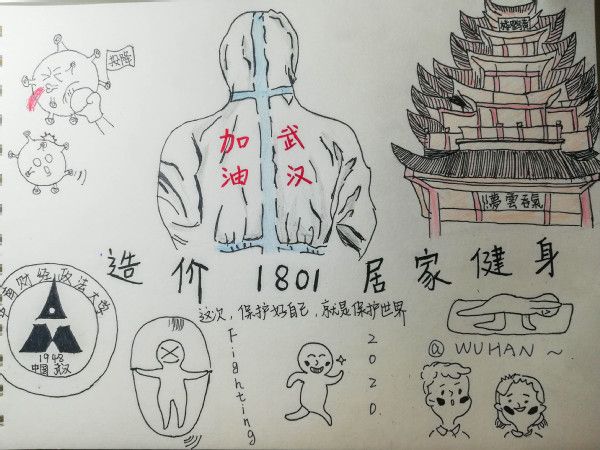 投降
武汉
加油
氣吞雲夢
造价 1801 居家健身
这次,保护好自己,就是保护世界
南财经政法大学
1948
中国 武汉
Fighting
2020.
@ WUHAN ~